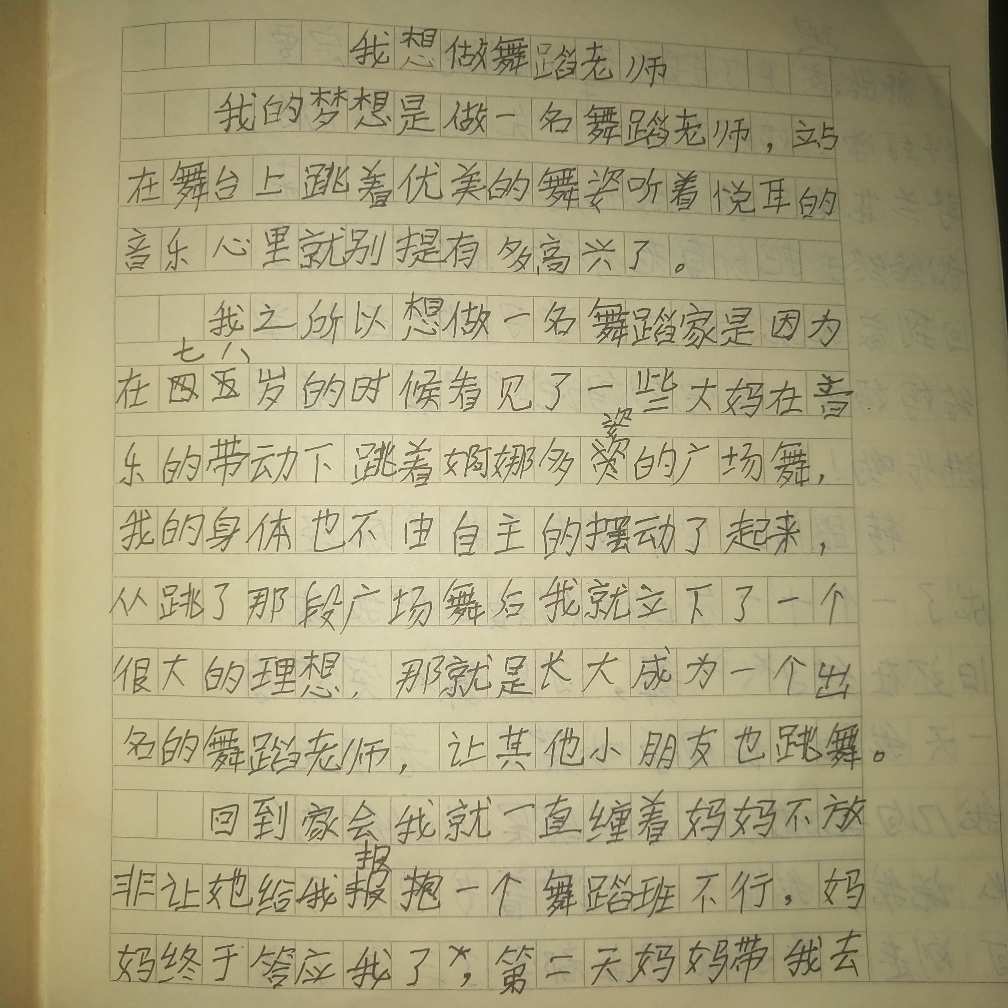 我想做舞蹈老师
我的梦想是做一名舞蹈老师，站
在舞台上跳着优美的舞姿听着悦耳的
音乐心里就别提有多高兴了。
我之所以想做一名舞蹈家是因为
七八
在四五岁的时候看见了一些大妈在音
姿
乐的带动下跳着婀娜多姿的广场舞，
我的身体也不由自主的摆动了起来，
从跳了那段广场舞后我就立下了一个
很大的理想，那就是长大成为一个出
名的舞蹈老师，让其他小朋友也跳舞。
回到家会我就一直缠着妈妈不放
报
非让她给我报抱一个舞蹈班不行，妈
妈终于答应我了，第二天妈妈带我去